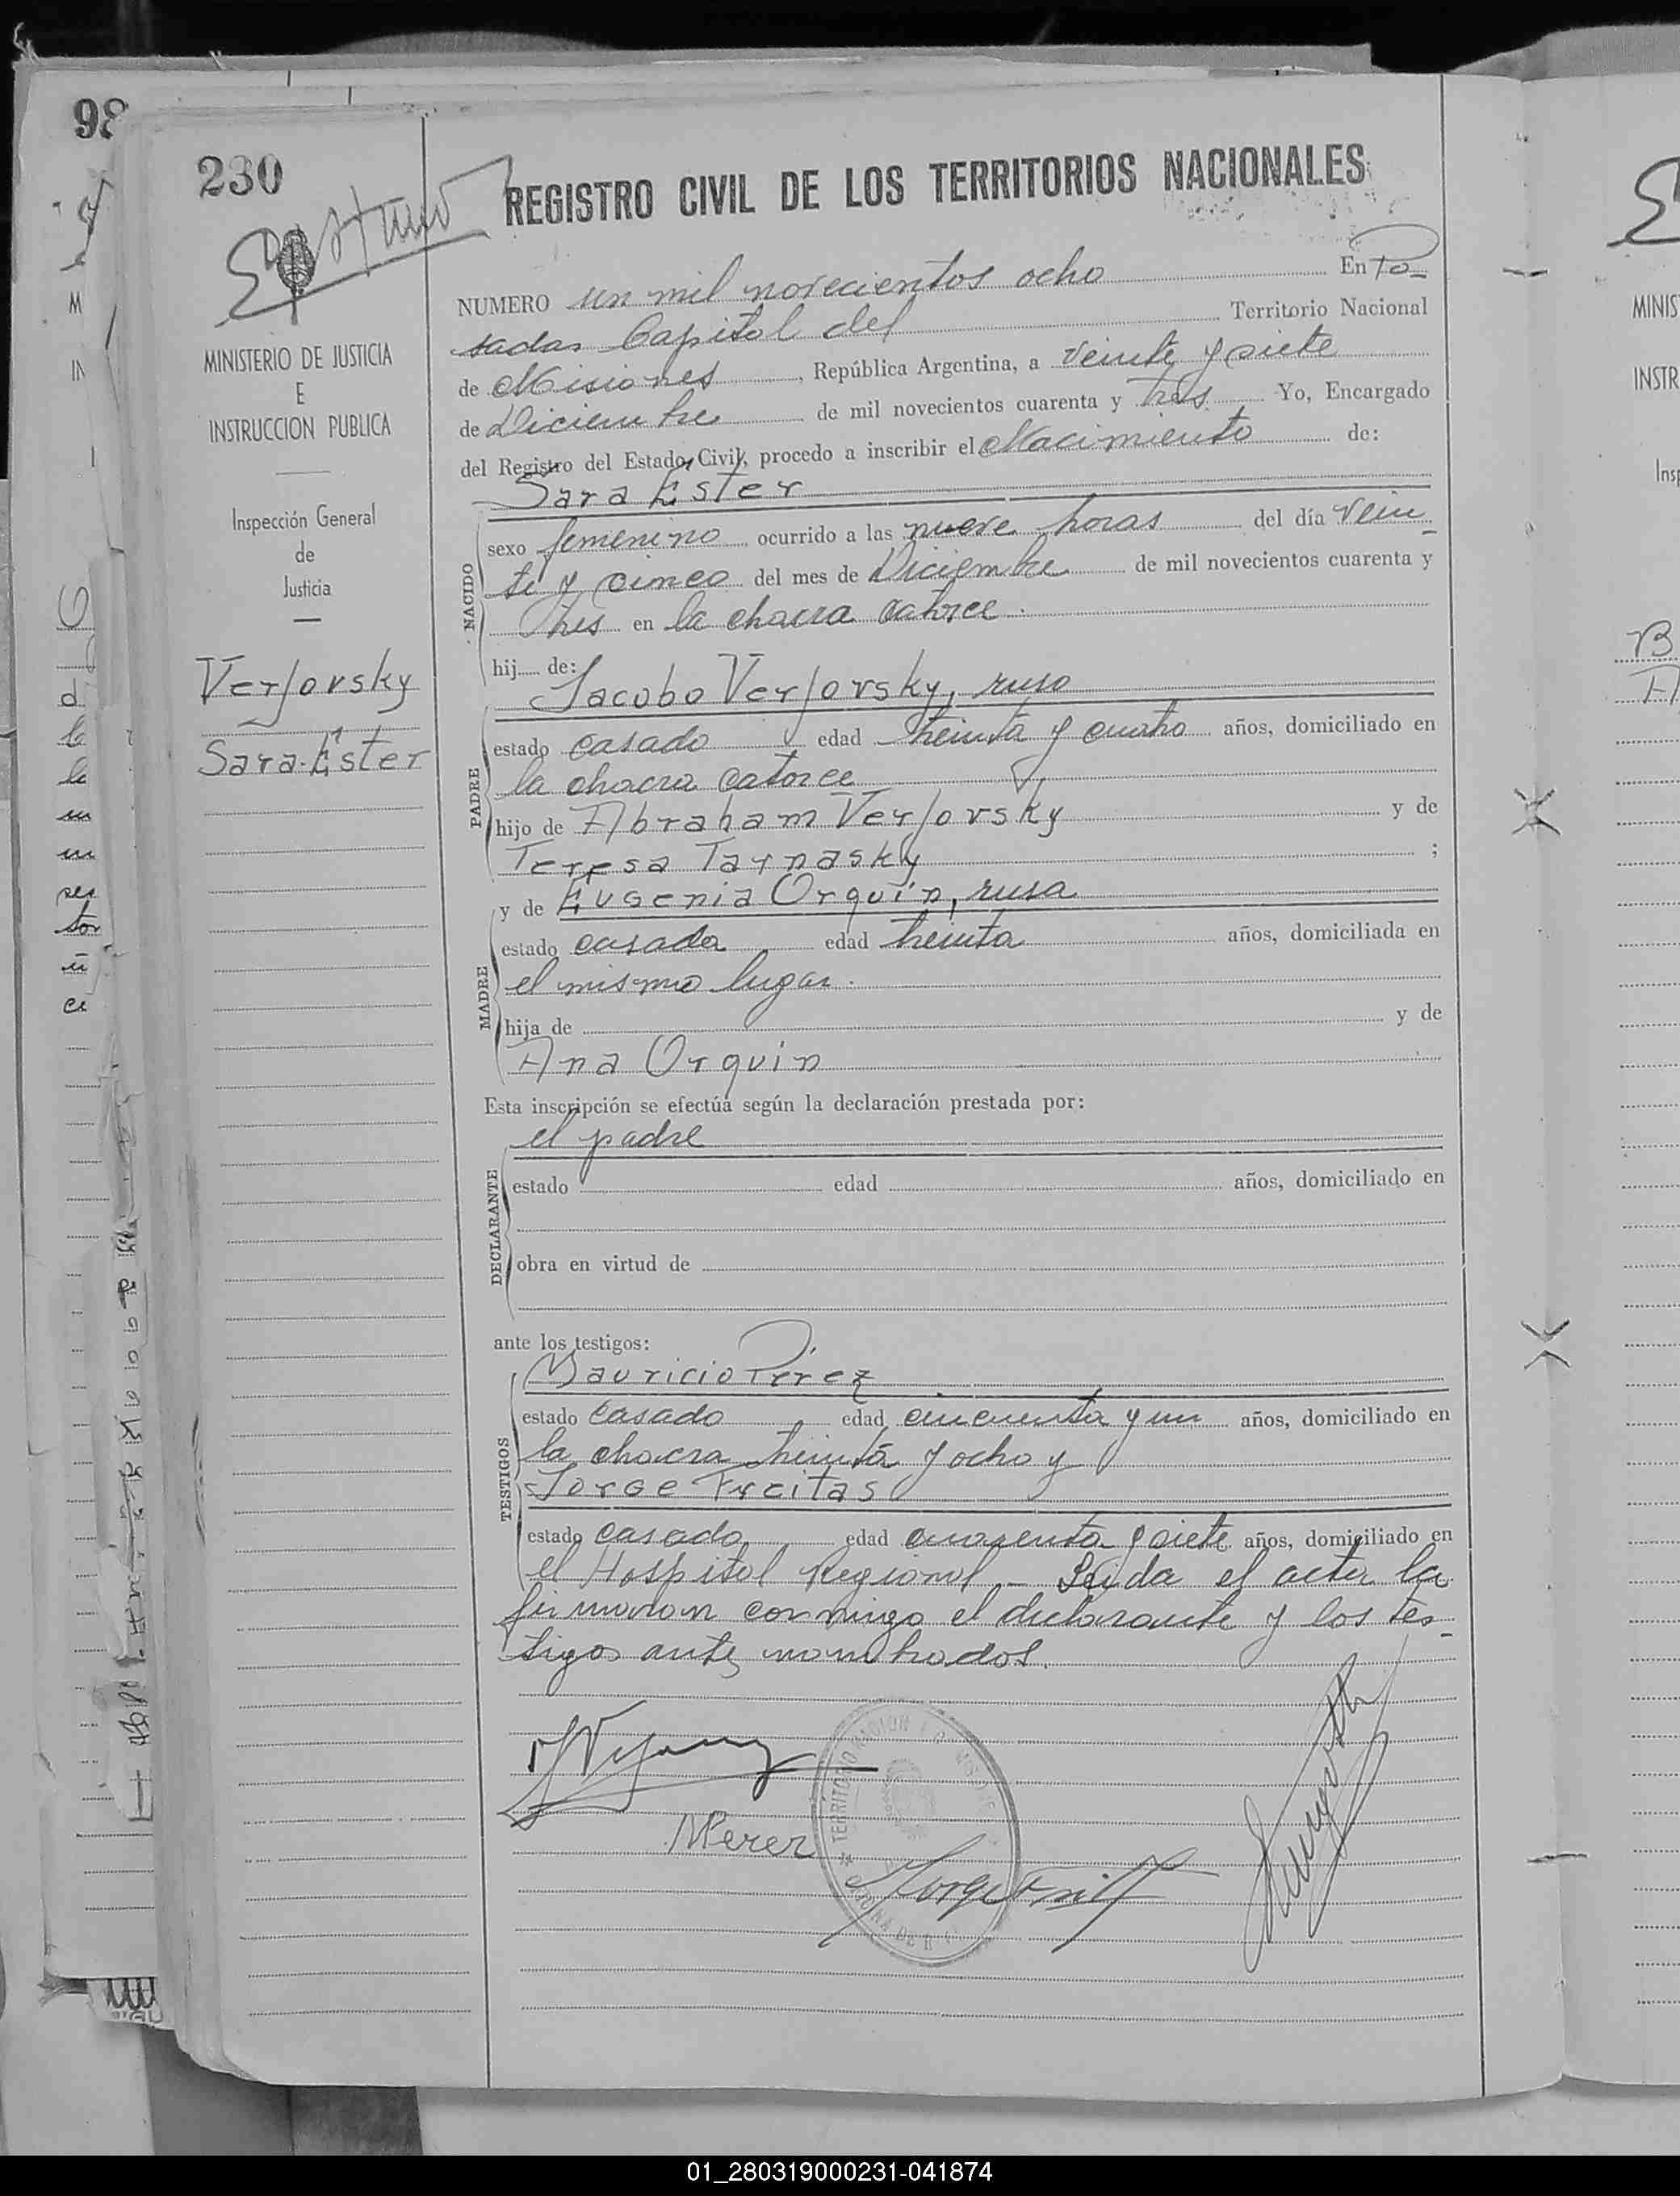 98
230
REGISTRO CIVIL DE LOS TERRITORIOS NACIONALES
MINISTERIO DE JUSTICIA
E
INSTRUCCION PUBLICA
Inspección General
de
Justicia
Verjovsky
Sara Ester
NUMERO un mil novecientos ocho En Po-
sadas Capital del Territorio Nacional
de Misiones, República Argentina, a veinte y siete
de Diciembre de mil novecientos cuarenta y tres Yo, Encargado
del Registro del Estado Civil, procedo a inscribir el Nacimiento de:
Sara Ester
NACIDO
sexo femenino ocurrido a las nueve horas del día vein-
te y cinco del mes de Diciembre de mil novecientos cuarenta y
tres en la chacra catorce.
hij de:
Jacobo Verjovsky, ruso
PADRE
estado casado edad treinta y cuatro años, domiciliado en
la chacra catorce
hijo de Abraham Verjovsky y de
Teresa Tarnasky ;
y de Eugenia Orquin, rusa
MADRE
estado casada edad treinta años, domiciliada en
el mismo lugar.
hija de y de
Ana Orquin
Esta inscripción se efectúa según la declaración prestada por:
el padre
DECLARANTE
estado edad años, domiciliado en
obra en virtud de
ante los testigos:
Mauricio Pérez
TESTIGOS
estado casado edad cincuenta y un años, domiciliado en
la chacra treinta y ocho y
Jorge Freitas
estado casado edad cuarenta y siete años, domiciliado en
el Hospital Regional - Leida el acta la
firmaron conmigo el declarante y los tes-
tigos antes nombrados.
MPerez
Jorge Freit
MINIS
INSTR
Insp
01_280319000231-041874